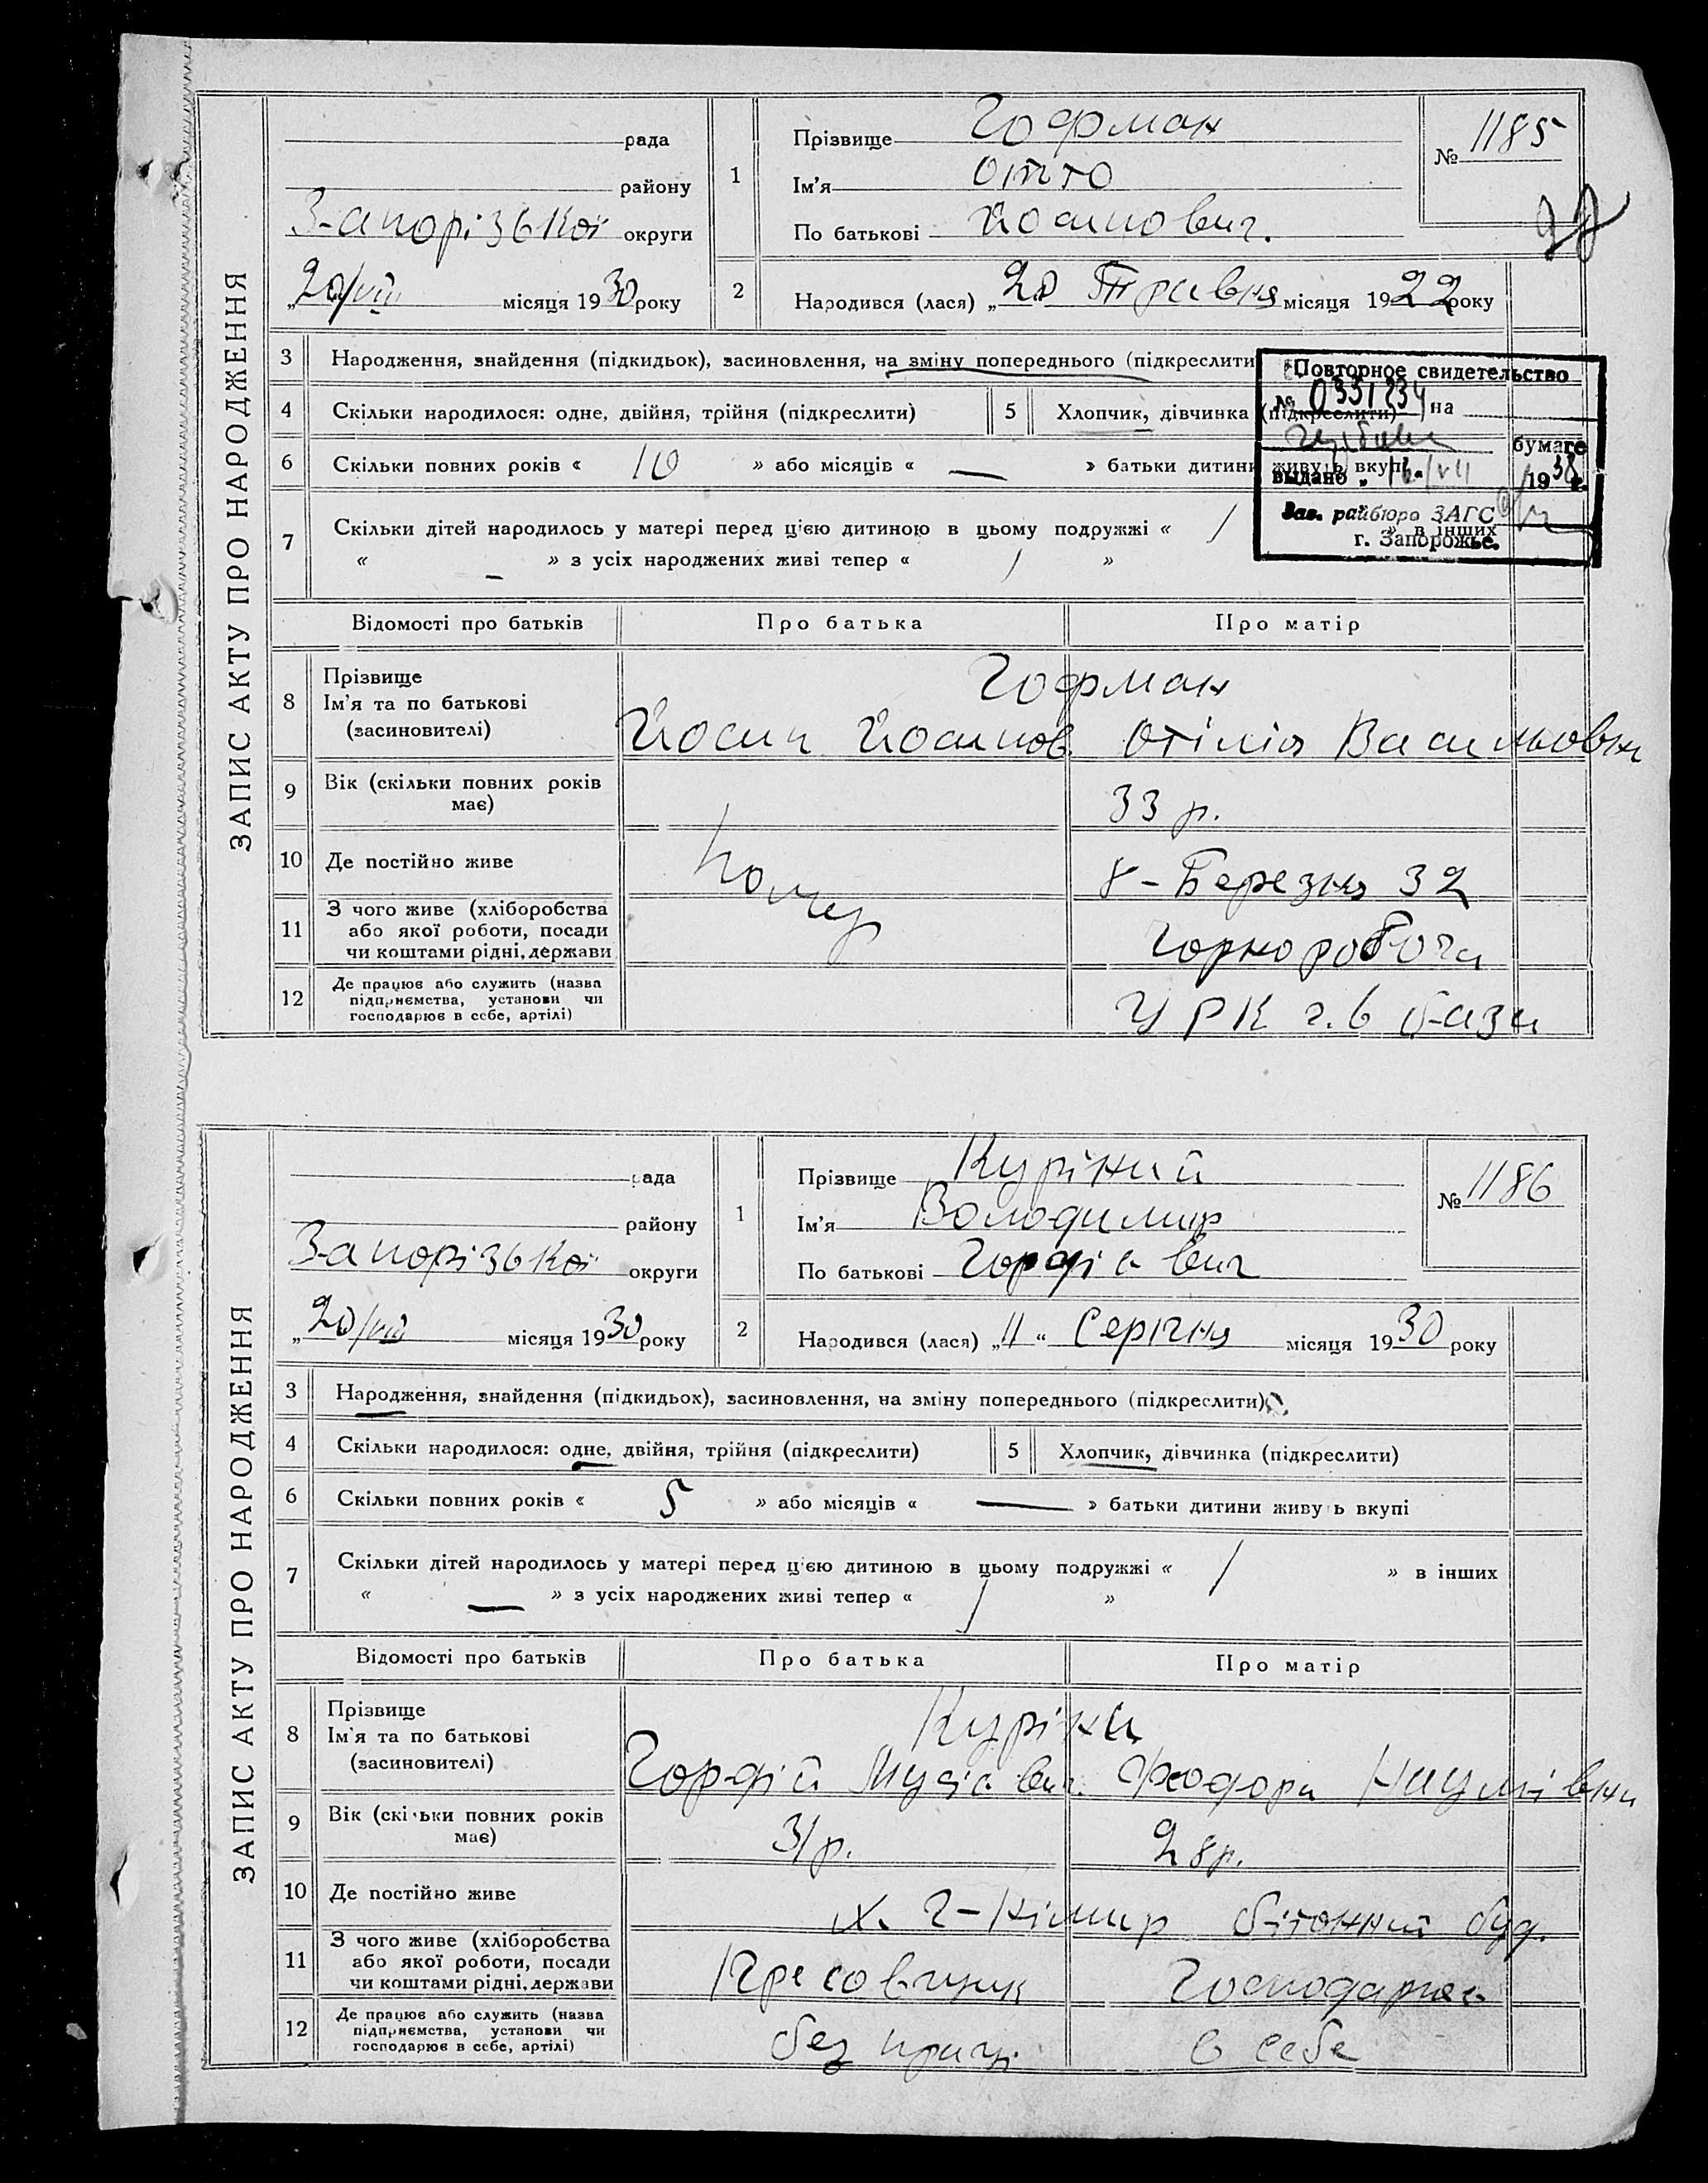 ЗАПИС АКТУ ПРО НАРОДЖЕННЯ
рада
району
Запорізької округи
„20/VIII місяця 1930 року
1
Прізвище Гофман
Ім'я Отто
По батькові Йосипович.
№ 1185
2
Народився (лася) „20 Травня місяця 1922 року
3 Народження, знайдення (підкидьок), засиновлення, на зміну попереднього (підкреслити
4 Скільки народилося: одне, двійня, трійня (підкреслити)
5 Хлопчик, дівчинка (підкреслити)
6 Скільки повних років « 10 » або місяців « — » батьки дитини живуть вкупі
7 Скільки дітей народилось у матері перед цією дитиною в цьому подружжі « / » в інших
« – » з усіх народжених живі тепер « / »
Повторное свидетельство
№ 0331234 на
бумаге
выдано „16/VII 1938 г.
Зав. райбюро ЗАГС
г. Запорожье.
Відомості про батьків Про батька Про матір
8 Прізвище
Ім'я та по батькові
(засиновителі)
Гофман
Йосип Йосипов. Отілія Васильовна
9 Вік (скільки повних років
має)
33 р.
10 Де постійно живе
Помер
8-Березня 32
11 З чого живе (хліборобства
або якої роботи, посади
чи коштами рідні, держави
чорноробоча
12 Де працює або служить (назва
підприємства, установи чи
господарює в себе, артілі)
УРК ч. 6 база
ЗАПИС АКТУ ПРО НАРОДЖЕННЯ
рада
району
Запорізької округи
„20/VIII місяця 1930 року
1
Прізвище Куріний
Ім'я Володимир
По батькові Гордієвич
№ 1186
2
Народився (лася) „11“ Серпня місяця 1930 року
3 Народження, знайдення (підкидьох), засиновлення, на зміну попереднього (підкреслити)
4 Скільки народилося: одне, двійня, трійня (підкреслити)
5 Хлопчик, дівчинка (підкреслити)
6 Скільки повних років « 5 » або місяців « — » батьки дитини живуть вкупі
7 Скільки дітей народилось у матері перед цією дитиною в цьому подружжі « / » в інших
« — » з усіх народжених живі тепер « / »
Відомості про батьків Про батька Про матір
8 Прізвище
Ім'я та по батькові
(засиновителі)
Куріни
Гордій Мусієвич. Феодора Наумівна
9 Вік (скільки повних років
має)
31 р. 28 р.
10 Де постійно живе
бітонний буд.
11 З чого живе (хліборобства
або якої роботи, посади
чи коштами рідні, держави
Пресовщик Господарює
12 Де працює або служить (назва
підприємства, установи чи
господарює в себе, артілі)
без праці в себе